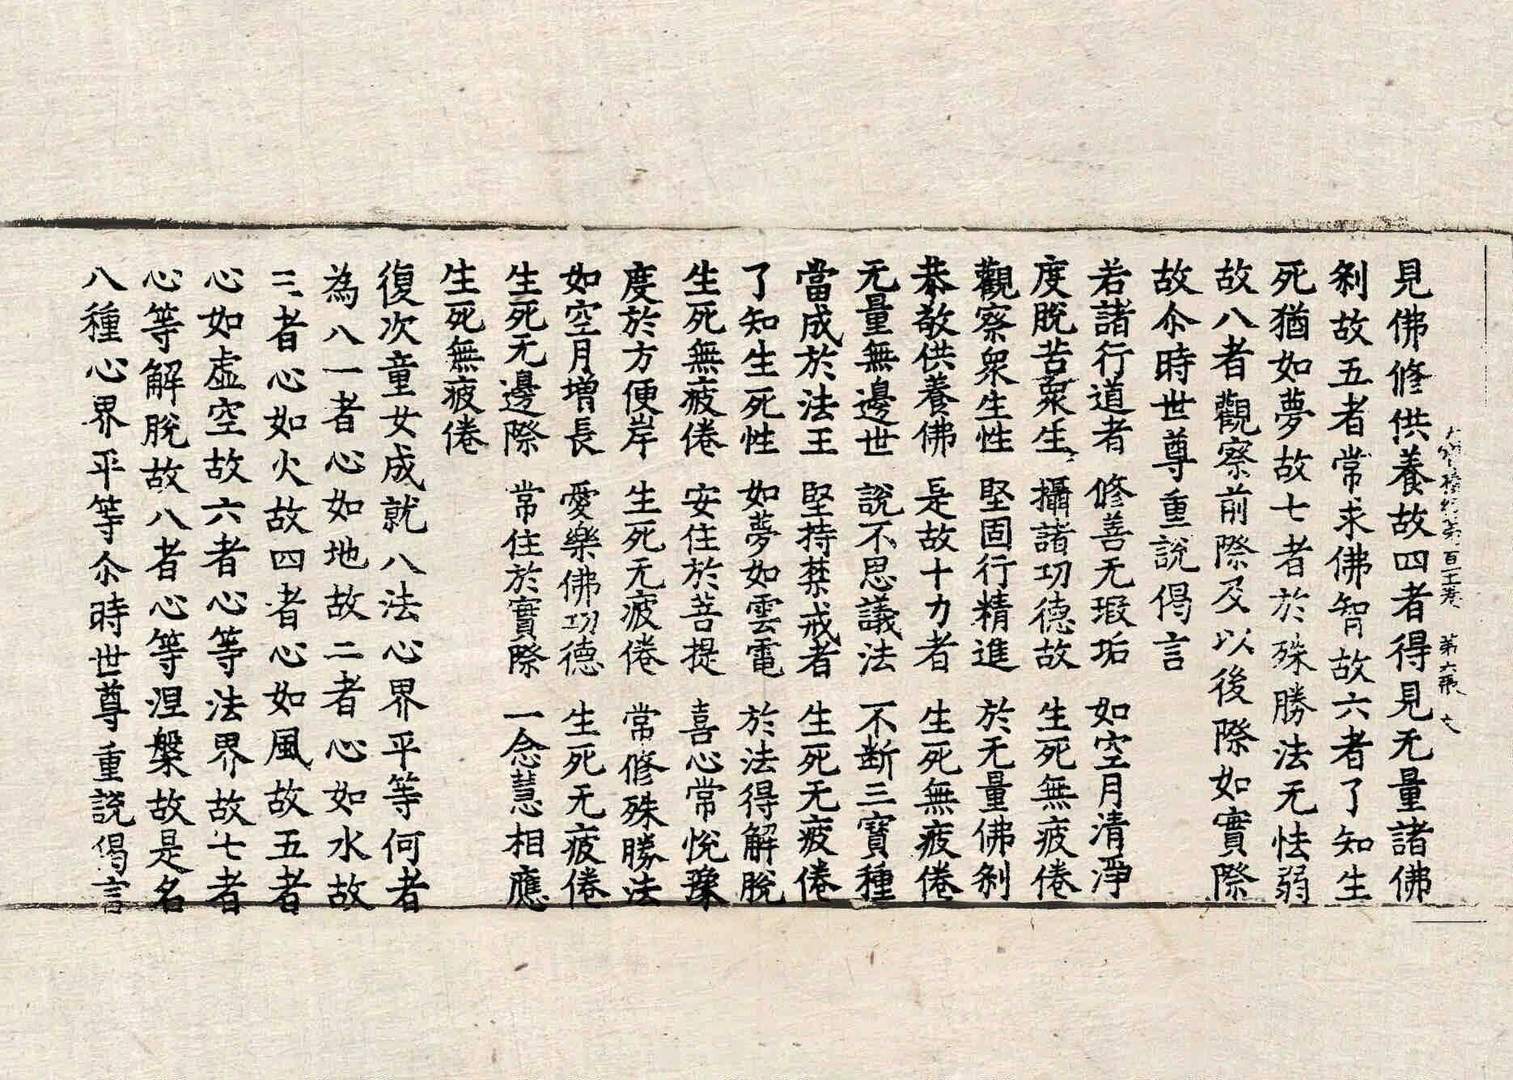 大寶積經第一百一十一卷 第六張 文
見佛修供養故四者得見无量諸佛
刹故五者常求佛智故六者了知生
死猶如夢故七者於殊勝法无怯弱
故八者觀察前際及以後際如實際
故尒時世尊重說偈言
若諸行道者 修善无瑕垢 如空月清淨
度脫苦衆生 攝諸功德故 生死無疲倦
觀察衆生性 堅固行精進 於无量佛刹
恭敬供養佛 是故十力者 生死無疲倦
无量無邊世 說不思議法 不断三寶種
當成於法王 堅持禁戒者 生死无疲倦
了知生死性 如夢如雲電 於法得解脫
生死無疲倦 安住於菩提 喜心常悅豫
度於方便岸 生死无疲倦 常修殊勝法
如空月增長 愛樂佛功德 生死无疲倦
生死无邊際 常住於實際 一念慧相應
生死無疲倦
復次童女成就八法心界平等何者
為八一者心如地故二者心如水故
三者心如火故四者心如風故五者
心如虛空故六者心等法界故七者
心等解脫故八者心等涅槃故是名
八種心界平等尒時世尊重說偈言